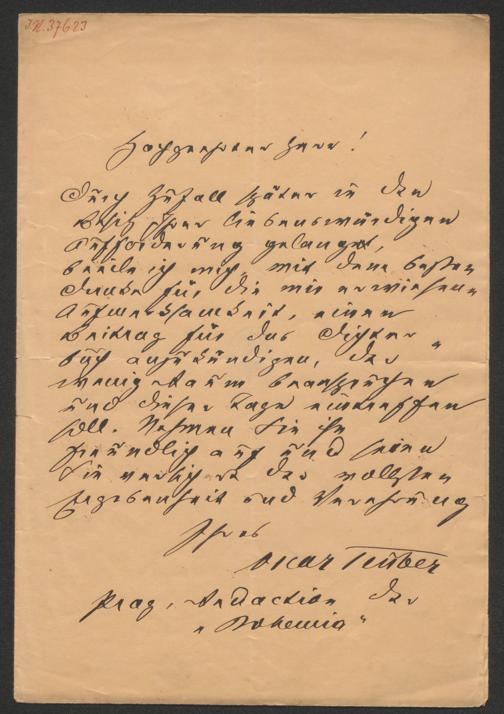 I.N. 37623
Hochgeehrter Herr!
Durch Zufall später in den
Besitz Ihrer liebenswürdigen
Aufforderung gelangt,
beeile ich mich, mit dem besten
Danke für die mir erwiesene
Aufmerksamkeit, einen
Beitrag für das Dichter-
buch anzukündigen, der
wenig Raum beanspruchen
und dieser Tage eintreffen
soll. Nehmen Sie ihn
freundlich auf und seien
Sie versichert der vollsten
Ergebenheit und Verehrung
Ihres
Oscar Teuber
Prag, Redaction der
"Bohemia"